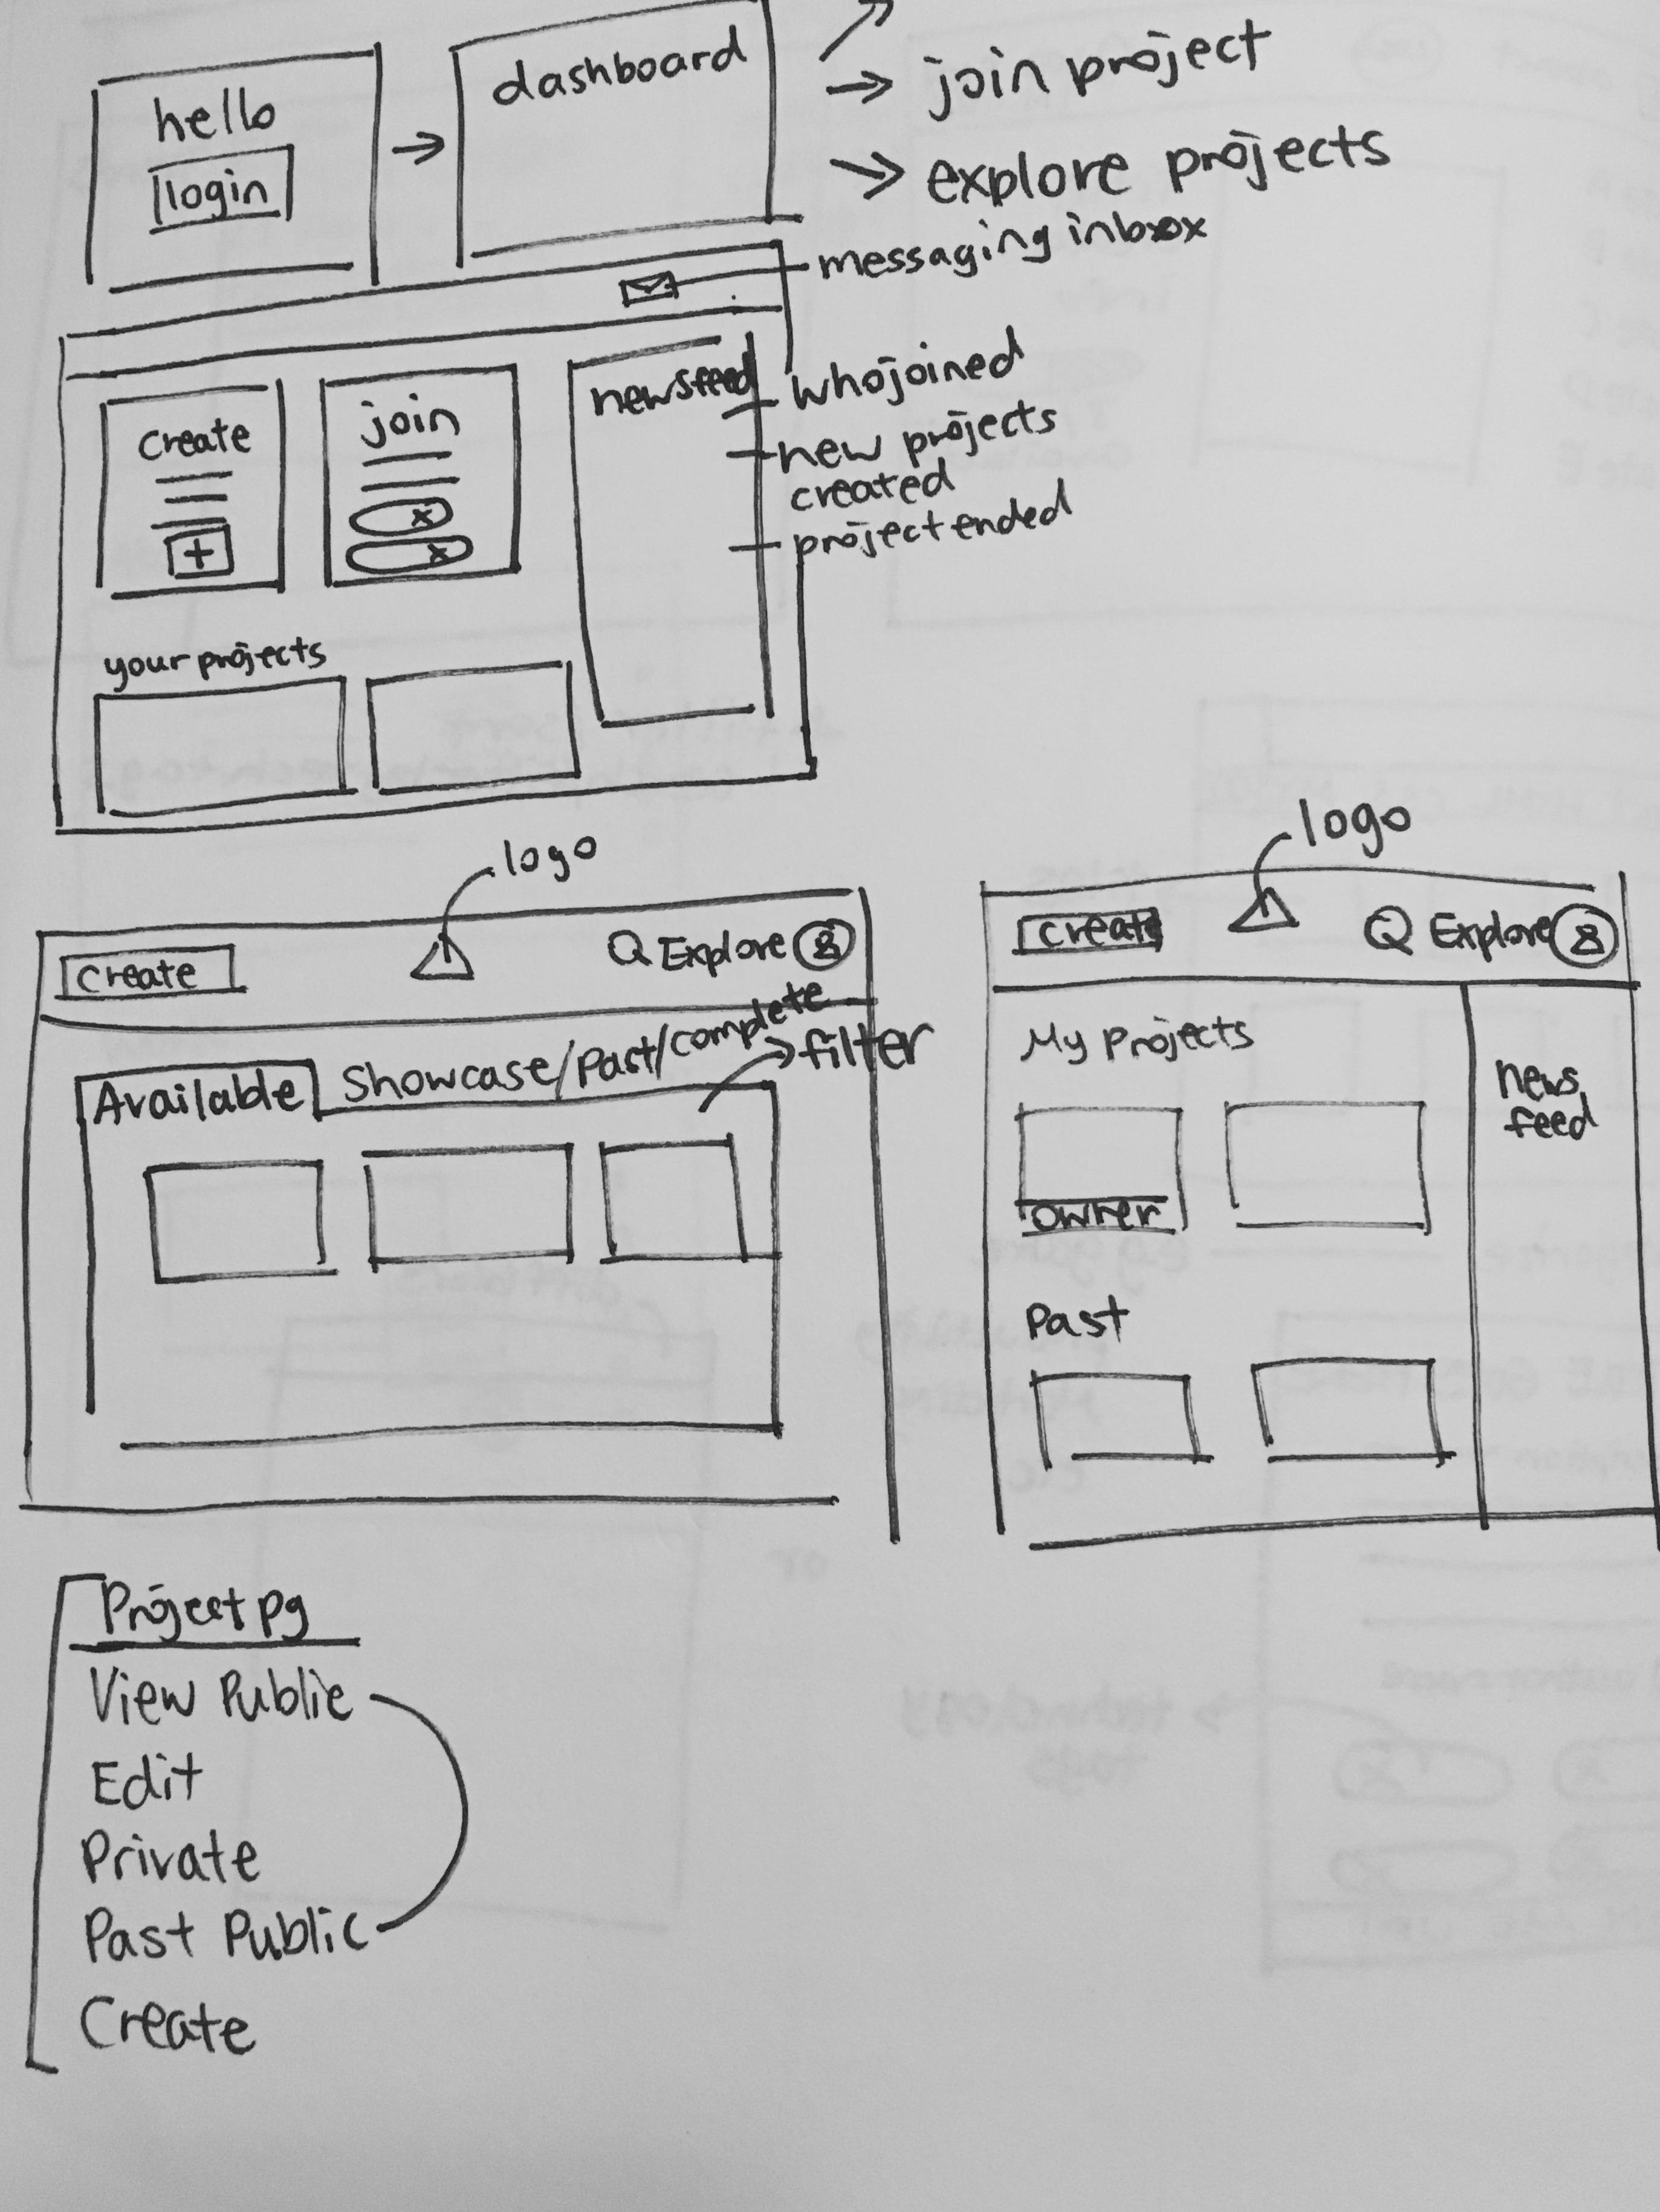 hello
login
dashboard
join project
explore projects
messaging inbox
create
join
x
x
+
newsfeed
who joined
new projects
created
project ended
your projects
logo
Create
Explore
Available
Showcase/Past/complete
filter
logo
Create
Explore
My Projects
owner
Past
news
feed
Project pg
View Public
Edit
Private
Past Public
Create